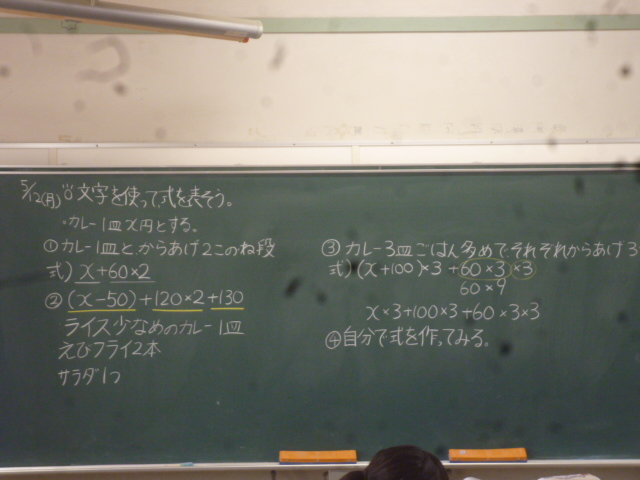 5/12(月) ◎文字を使って式を表そう。
・カレー1皿x円とする。
①カレー1皿と、からあげ2このね段
式) x+60×2
②(x-50)+120×2+130
ライス少なめのカレー1皿
えびフライ2本
サラダ1つ
③カレー3皿ごはん多めで、それぞれからあげ3
式)(x+100)×3+60×3×3
60×9
x×3+100×3+60×3×3
④自分で式を作ってみる。